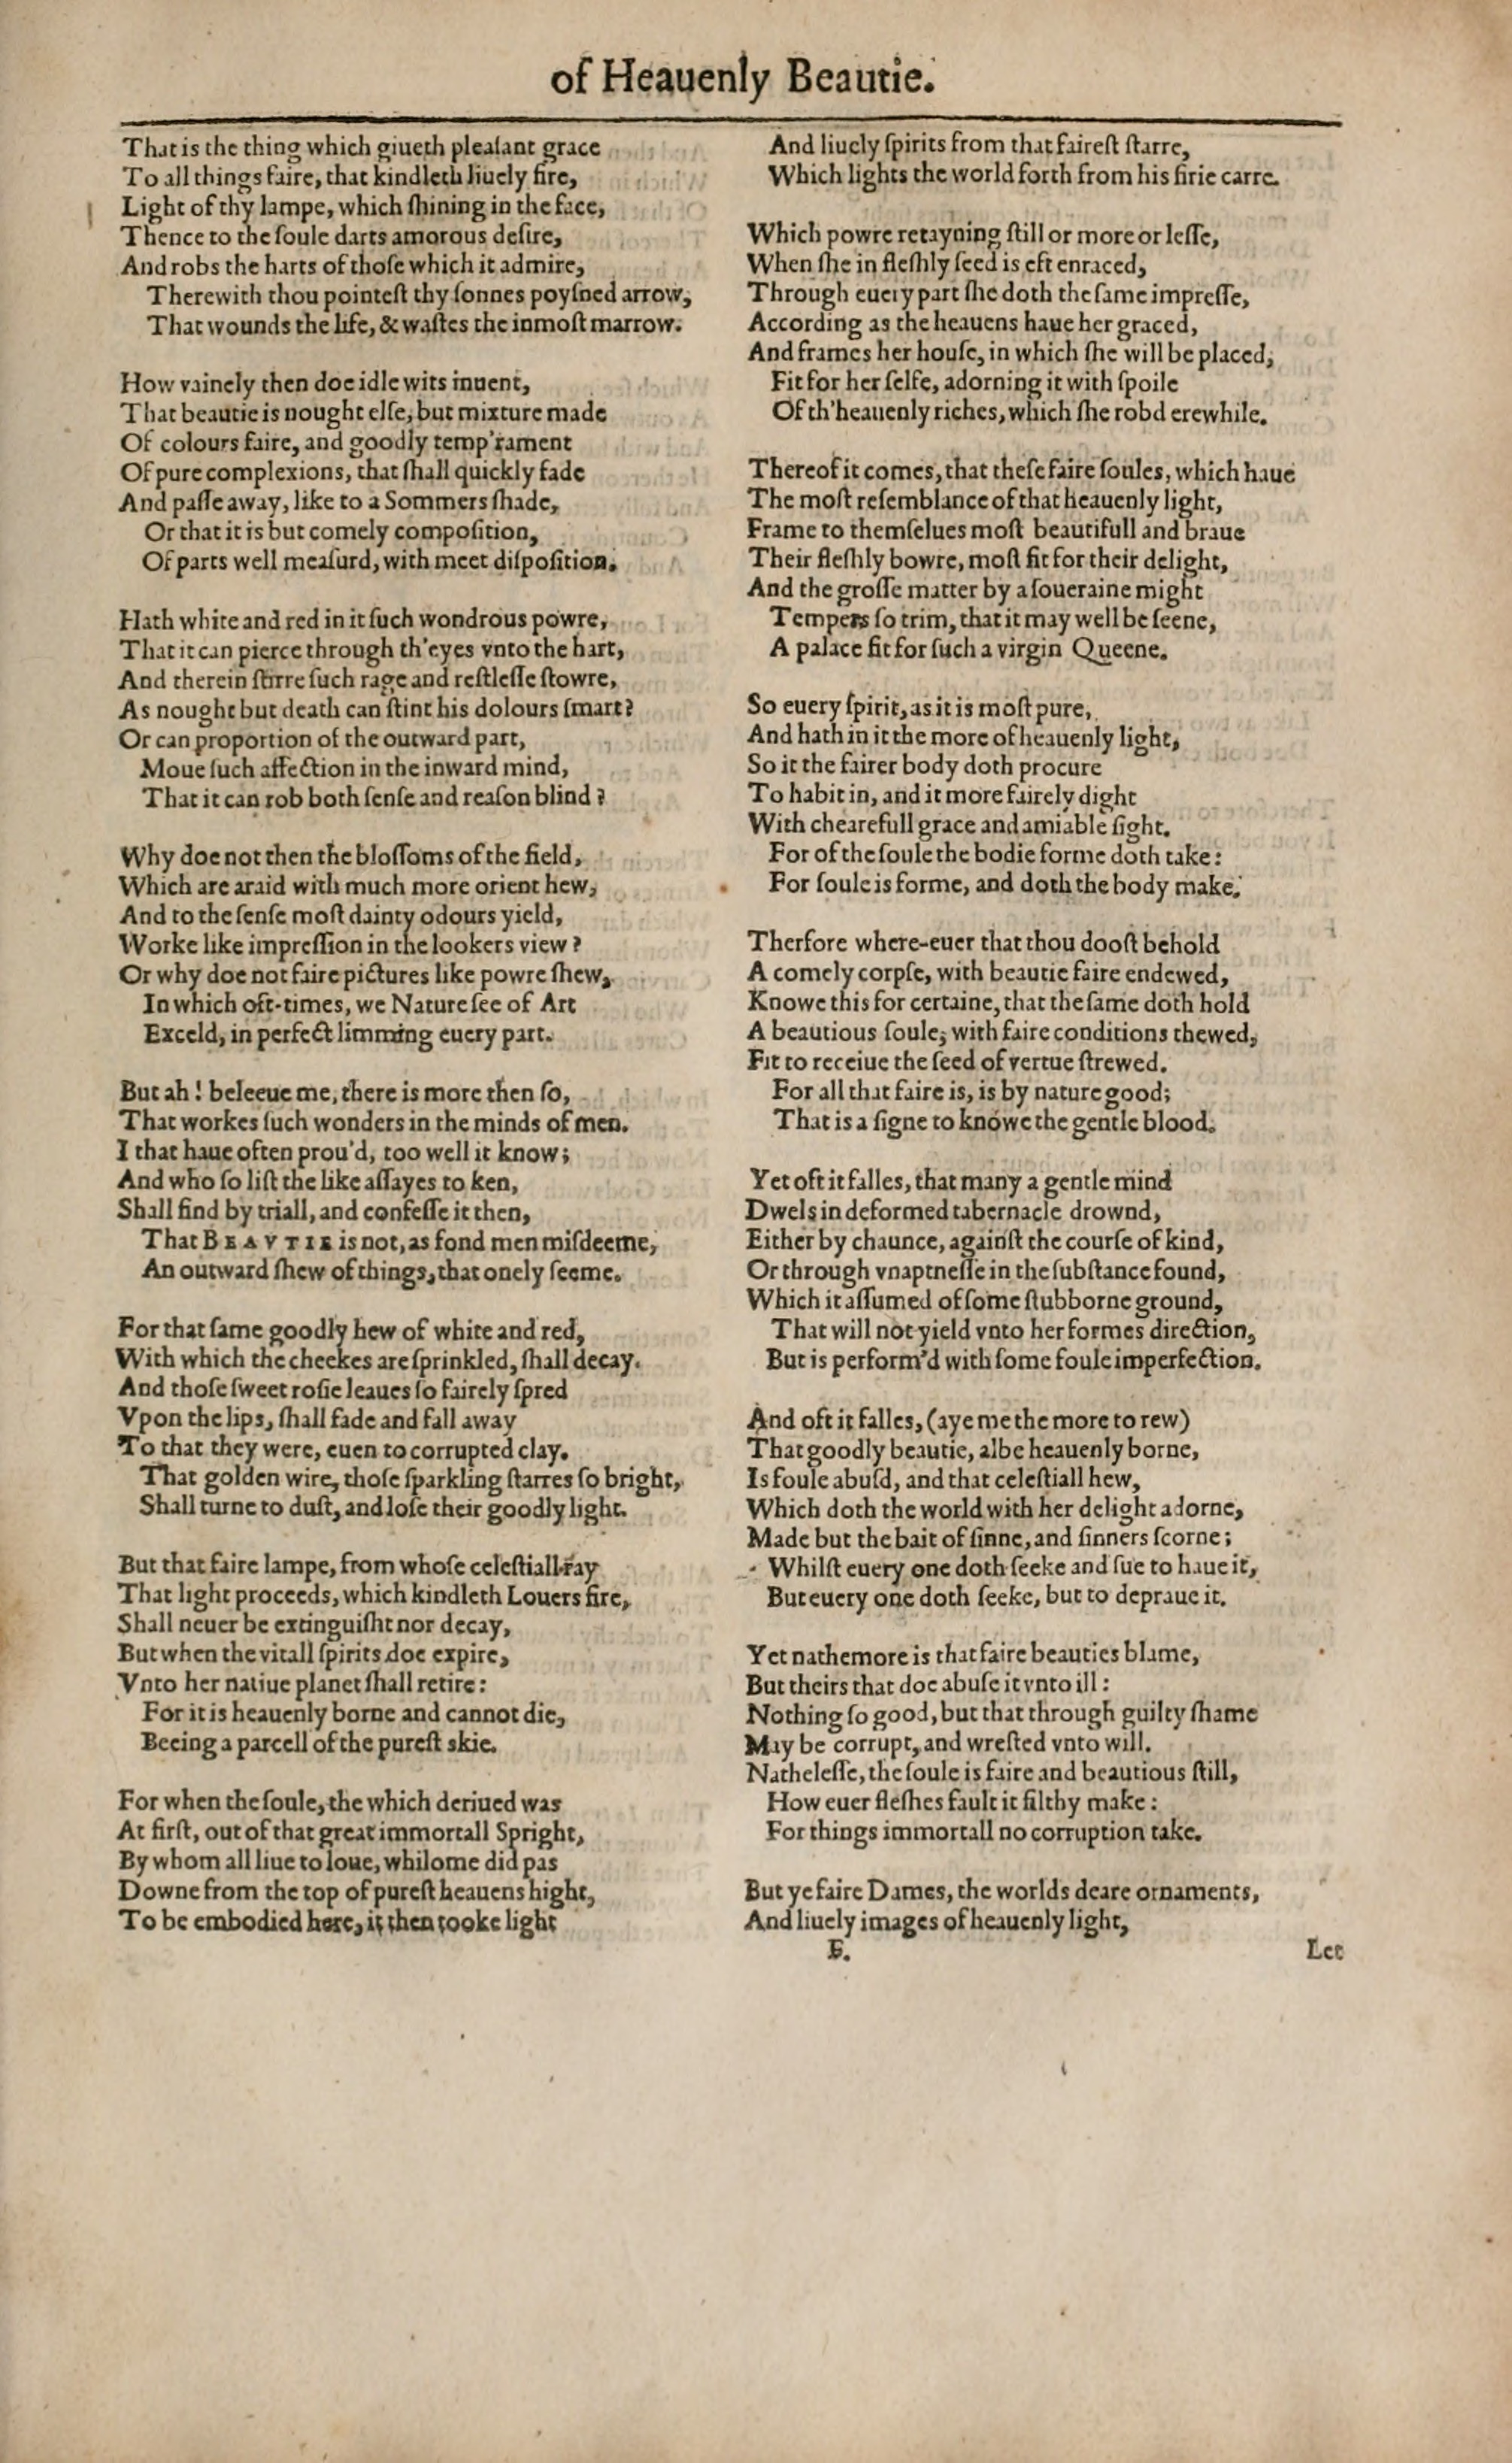 of Heauenly Beautie.
That is the thing which giueth pleaſant grace
To all things faire, that kindleth liuely fire,
Light of thy lampe, which ſhining in the face,
Thence to the ſoule darts amorous deſire,
And robs the harts of thoſe which it admire,
Therewith thou pointeſt thy ſonnes poyſned arrow,
That wounds the life, & waſtes the inmoſt marrow.

How vainely then doe idle wits inuent,
That beautie is nought elſe, but mixture made
Of colours faire, and goodly temp'rament
Of pure complexions, that ſhall quickly fade
And paſſe away, like to a Sommers ſhade,
Or that it is but comely compoſition,
Of parts well meaſurd, with meet diſpoſition.

Hath white and red in it ſuch wondrous powre,
That it can pierce through th'eyes vnto the hart,
And therein ſtirre ſuch rage and reſtleſſe ſtowre,
As nought but death can ſtint his dolours ſmart?
Or can proportion of the outward part,
Moue ſuch affection in the inward mind,
That it can rob both ſenſe and reaſon blind?

Why doe not then the bloſſoms of the field,
Which are araid with much more orient hew,
And to the ſenſe moſt dainty odours yield,
Worke like impreſſion in the lookers view?
Or why doe not faire pictures like powre ſhew,
In which oft-times, we Nature ſee of Art
Exceld, in perfect limming euery part.

But ah! beleeue me, there is more then ſo,
That workes ſuch wonders in the minds of men.
I that haue often prou'd, too well it know;
And who ſo liſt the like aſſayes to ken,
Shall find by triall, and confeſſe it then,
That BEAVTIE is not, as fond men miſdeeme,
An outward ſhew of things, that onely ſeeme.

For that ſame goodly hew of white and red,
With which the cheekes are ſprinkled, ſhall decay.
And thoſe ſweet roſie leaues ſo fairely ſpred
Vpon the lips, ſhall fade and fall away
To that they were, euen to corrupted clay.
That golden wire, thoſe ſparkling ſtarres ſo bright,
Shall turne to duſt, and loſe their goodly light.

But that faire lampe, from whoſe celeſtiall ray
That light proceeds, which kindleth Louers fire,
Shall neuer be extinguiſht nor decay,
But when the vitall ſpirits doe expire,
Vnto her natiue planet ſhall retire:
For it is heauenly borne and cannot die,
Beeing a parcell of the pureſt skie.

For when the ſoule, the which deriued was
At firſt, out of that great immortall Spright,
By whom all liue to loue, whilome did pas
Downe from the top of pureſt heauens hight,
To be embodied here, it then tooke light
And liuely ſpirits from that faireſt ſtarre,
Which lights the world forth from his firie carre.

Which powre retayning ſtill or more or leſſe,
When ſhe in fleſhly ſeed is eft enraced,
Through euery part ſhe doth the ſame impreſſe,
According as the heauens haue her graced,
And frames her houſe, in which ſhe will be placed,
Fit for her ſelfe, adorning it with ſpoile
Of th'heauenly riches, which ſhe robd erewhile.

Thereof it comes, that theſe faire ſoules, which haue
The moſt reſemblance of that heauenly light,
Frame to themſelues moſt beautifull and braue
Their fleſhly bowre, moſt fit for their delight,
And the groſſe matter by a ſoueraine might
Tempers ſo trim, that it may well be ſeene,
A palace fit for ſuch a virgin Queene.

So euery ſpirit, as it is moſt pure,
And hath in it the more of heauenly light,
So it the fairer body doth procure
To habit in, and it more fairely dight
With chearefull grace and amiable ſight.
For of the ſoule the bodie forme doth take:
For ſoule is forme, and doth the body make.

Therfore where-euer that thou dooſt behold
A comely corpſe, with beautie faire endewed,
Knowe this for certaine, that the ſame doth hold
A beautious ſoule, with faire conditions thewed,
Fit to receiue the ſeed of vertue ſtrewed.
For all that faire is, is by nature good;
That is a ſigne to knowe the gentle blood.

Yet oft it falles, that many a gentle mind
Dwels in deformed tabernacle drownd,
Either by chaunce, againſt the courſe of kind,
Or through vnaptneſſe in the ſubſtance found,
Which it aſſumed of ſome ſtubborne ground,
That will not yield vnto her formes direction,
But is perform'd with ſome foule imperfection.

And oft it falles, (aye me the more to rew)
That goodly beautie, albe heauenly borne,
Is foule abuſd, and that celeſtiall hew,
Which doth the world with her delight adorne,
Made but the bait of ſinne, and ſinners ſcorne;
Whilſt euery one doth ſeeke and ſue to haue it,
But euery one doth ſeeke, but to depraue it.

Yet nathemore is that faire beauties blame,
But theirs that doe abuſe it vnto ill:
Nothing ſo good, but that through guilty ſhame
May be corrupt, and wreſted vnto will.
Natheleſſe, the ſoule is faire and beautious ſtill,
How euer fleſhes fault it filthy make:
For things immortall no corruption take.

But ye faire Dames, the worlds deare ornaments,
And liuely images of heauenly light,
E.
Let